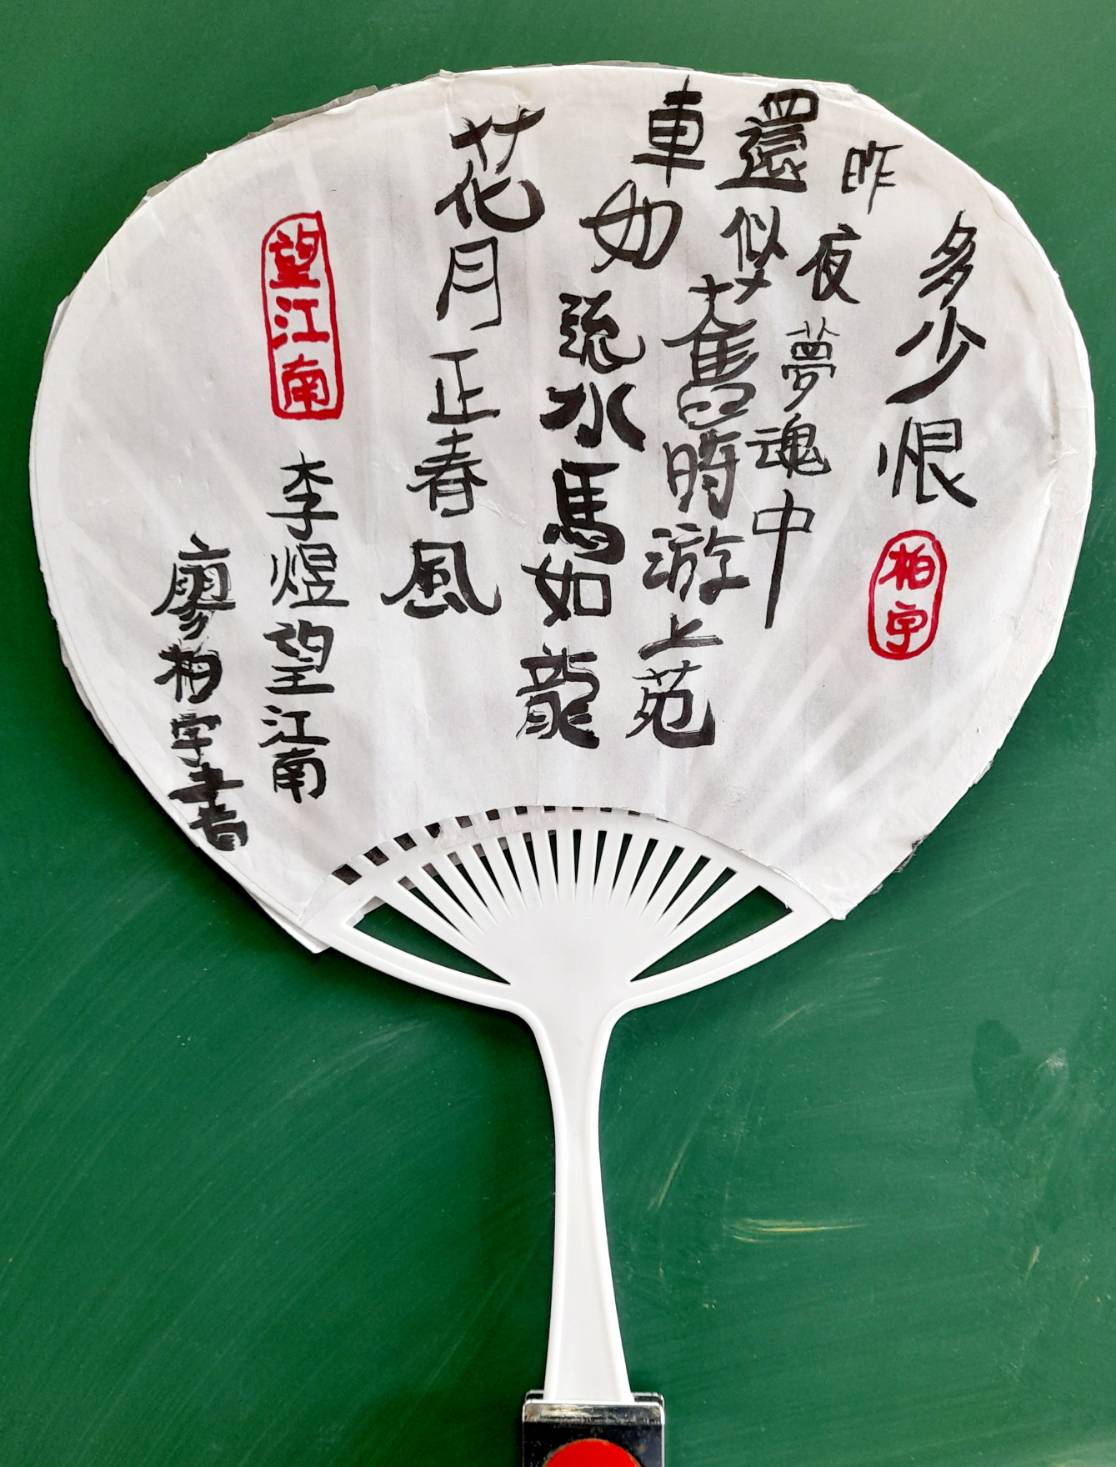 多少恨
柏字
昨夜夢魂中
還似舊時游上苑
車如流水馬如龍
花月正春風
望江南
李煜望江南
廖柏字書